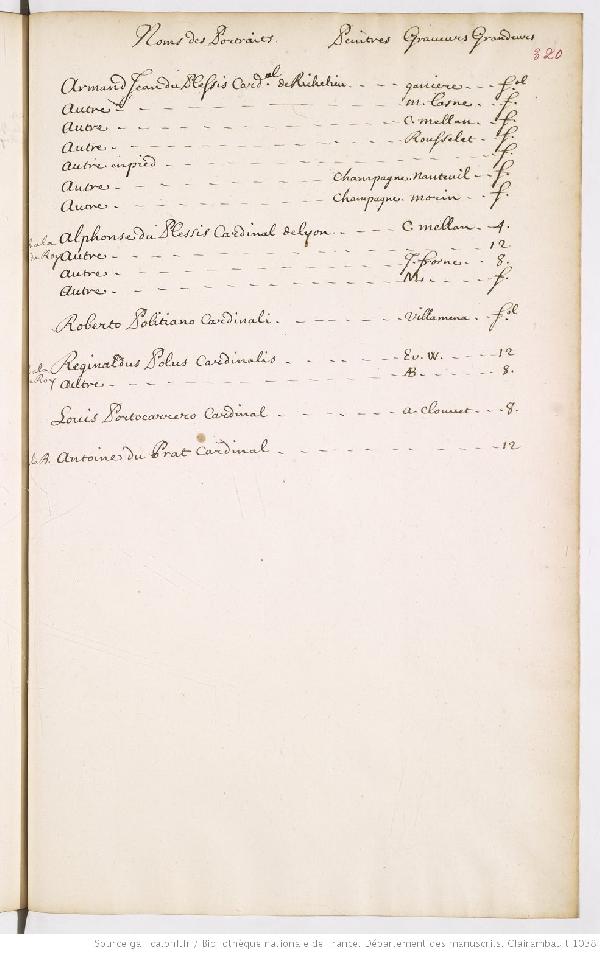 Noms des Portraits. Peintres Graveurs Grandeurs
320
Armand Jean du Plessis Card.al de Richelieu - - - - ganiere - - f.ol
Autre - - - m. Lasne - - f.
Autre - - - C. mellan - - f.
Autre - - - Rousselet - - f.
Autre en pied - - - f.
Autre - - - Champagne. Nanteuil - - f.
Autre - - - Champagne. morin - - f.
Alphonse du Plessis Cardinal de Lyon - - - C. mellan - - 4.
Autre - - - 12
Autre - - - J. frosne - 8.
Autre - - - M - - f.
Roberto Politiano Cardinali - - - Villamena - - f.ol
Reginaldus Polus Cardinalis - - - Ev. W. - - - 12
Autre - - - AB - - - 8.
Louis Portocarrero Cardinal - - - a. Clouuet - - - 8.
Antoine du Prat Cardinal - - - 12
Source gallica.bnf.fr / Bibliothèque nationale de France. Département des manuscrits. Clairambault 1038